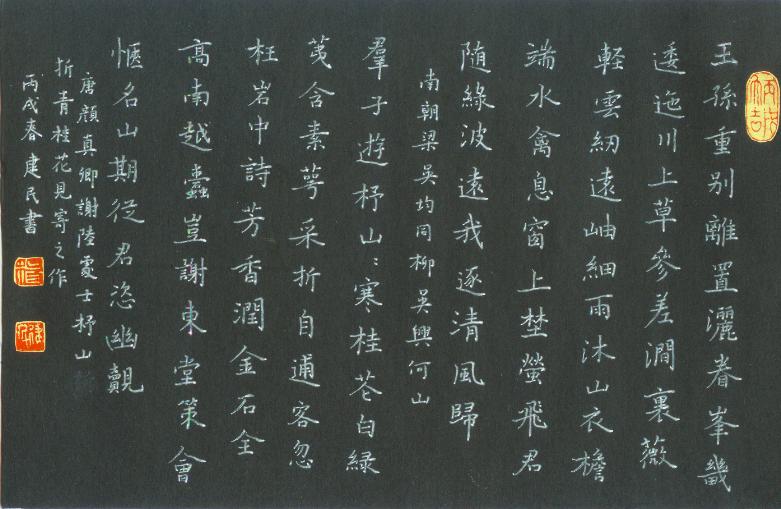 王孫重別離置灑眷峯畿
逶迤川上草參差澗裏薇
軽雲紉遠岫細雨沐山衣檐
端水禽息窗上埜螢飛君
随綠波遠我逐清風歸
南朝梁吳均同柳吳興何山
羣子遊杼山々寒桂苍白緑
荑含素萼采折自逋客忽
枉岩中詩芳香潤金石全
髙南越蠹豈謝東堂策會
惬名山期從君恣幽觌
唐顔真卿謝陸處士杼山
折青桂花見寄之作
丙戌春建民書